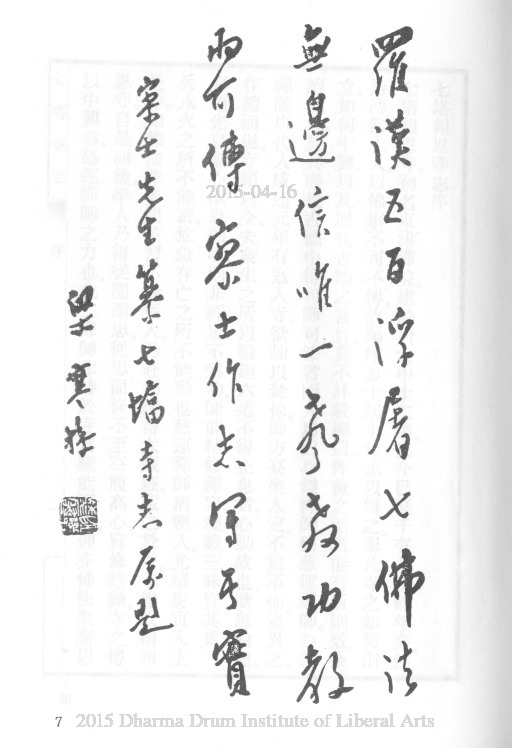 羅漢五百浮屠七佛法
無邊信唯一 功教
兩可傳寥士作志寫其實
寥士先生纂七塔寺志屬題
梁寒操
2015-04-16
7 2015 Dharma Drum Institute of Liberal Arts